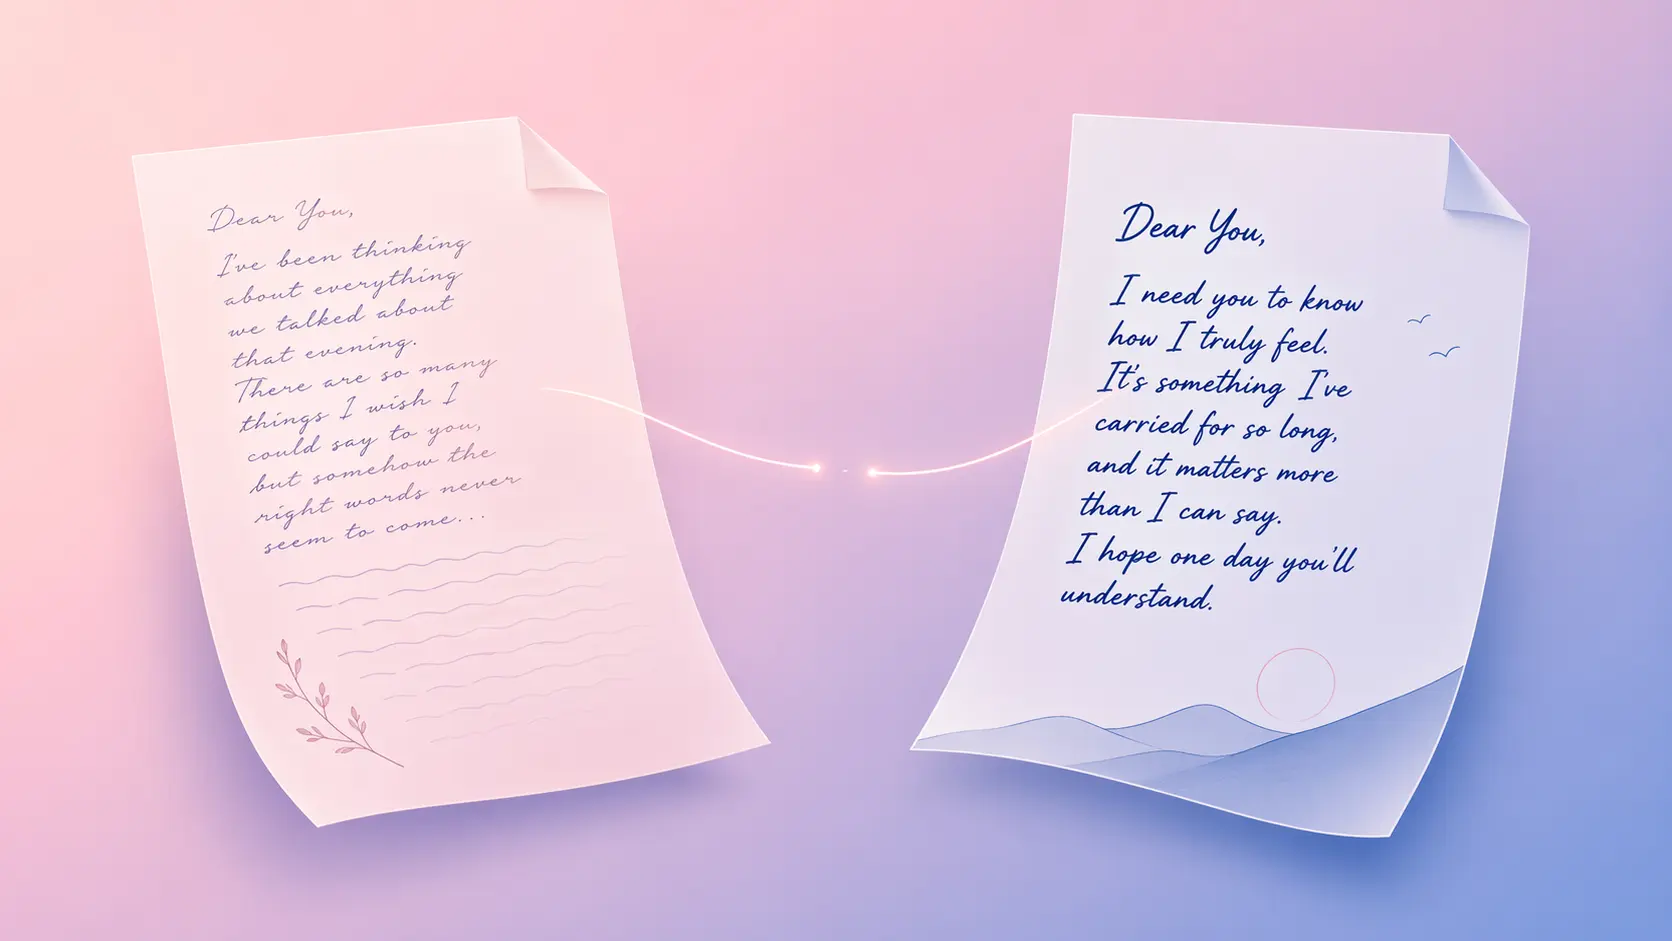 Dear You,
I've been thinking
about everything
we talked about
that evening.
There are so many
things I wish I
could say to you,
but somehow the
right words never
seem to come...
Dear You,
I need you to know
how I truly feel.
It's something I've
carried for so long,
and it matters more
than I can say.
I hope one day you'll
understand.